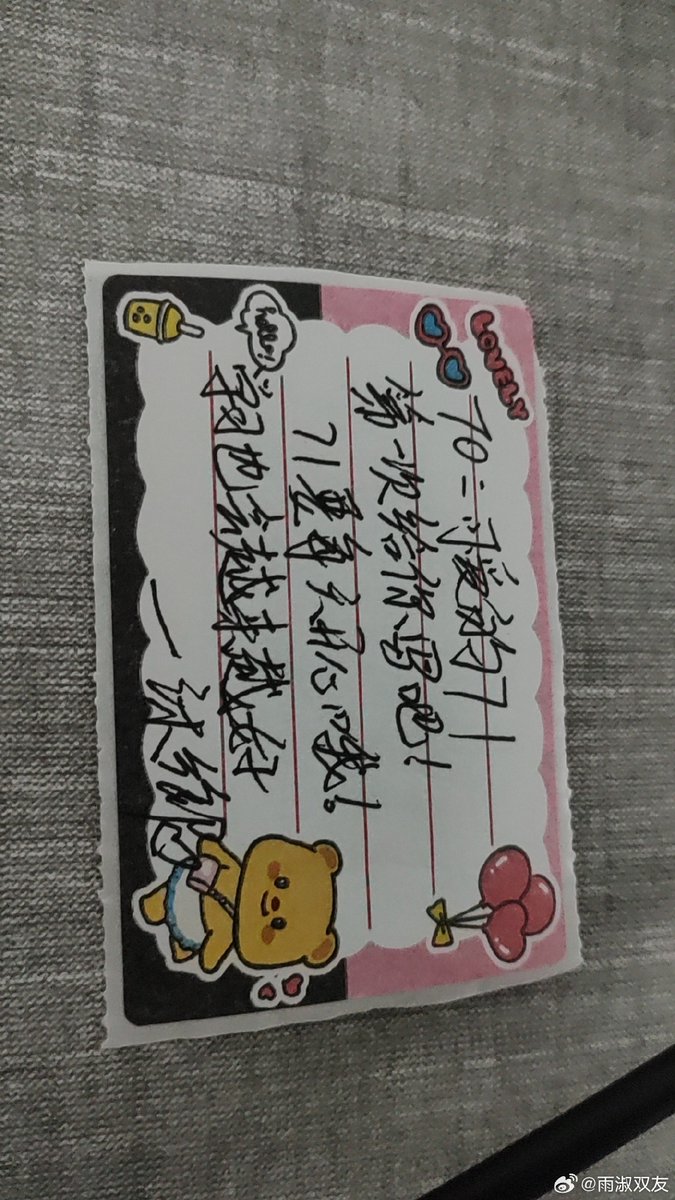 LOVELY
hello!
TO:可爱的71
第一次给你写吧!
71要每天开心哦!
我也会越来越好
@雨淑双友